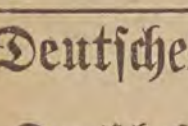 Deutſche